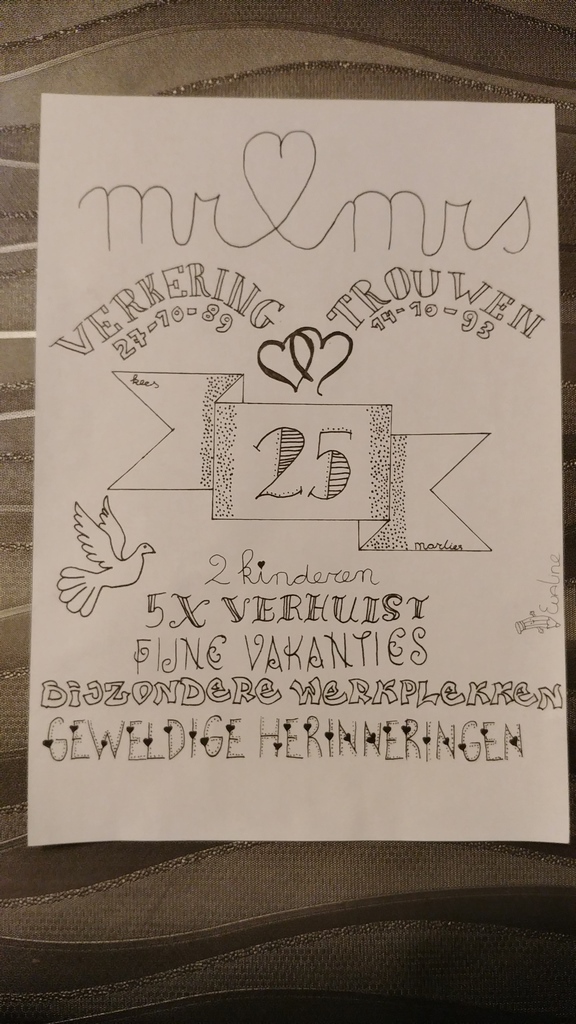 mr mrs
VERKERING TROUWEN
27-10-89 14-10-93
kees
25
marlies
2 kinderen
5X VERHUIST
FIJNE VAKANTIES
BIJZONDERE WERKPLEKKEN
GEWELDIGE HERINNERINGEN
Evaline